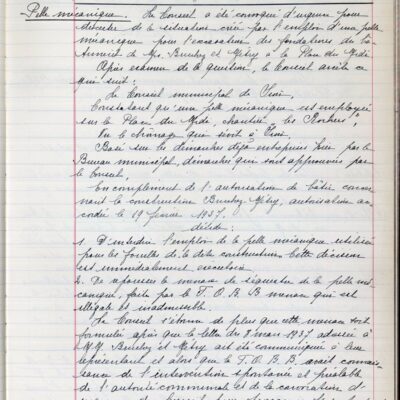 Pelle mécanique. Le Conseil a été convoqué d'urgence pour
discuter de la situation créée par l'emploi d'une pelle
mécanique pour l'excavation des fondations du bâ-
timent de Mrs. Bruchez et Métry à la Place du Midi.
Après examen de la question, le Conseil arrête ce
qui suit:
Le Conseil municipal de Sion,
Constatant qu'une pelle mécanique est employée
sur la Place du Midi, chantier "les Rochers",
Vu le chômage qui sévit à Sion,
Basé sur les démarches déjà entreprises hier par le
Bureau municipal, démarches qui sont approuvées par
le Conseil,
En complément de l'autorisation de bâtir concer
nant la construction Bruchez-Métry, autorisation ac-
cordée le 19 février 1937,
décide:
1. D'interdire l'emploi de la pelle mécanique utilisée
pour les fouilles de la dite construction. Cette décision
est immédiatement exécutoire.
2. De repousser la menace de séquestre de la pelle mé-
canique, faite par le F. O. B. B. menace qui est
illégale et inadmissible.
Le Conseil s'étonne de plus que cette menace soit
formulée après que la lettre du 8 mars 1937 adressée à
M.M. Bruchez et Métry ait été communiquée à leur
représentant et alors que la F.O.B.B. avait connais-
sance de l'intervention spontanée et préalable
de l'autorité communale et de la convocation d'